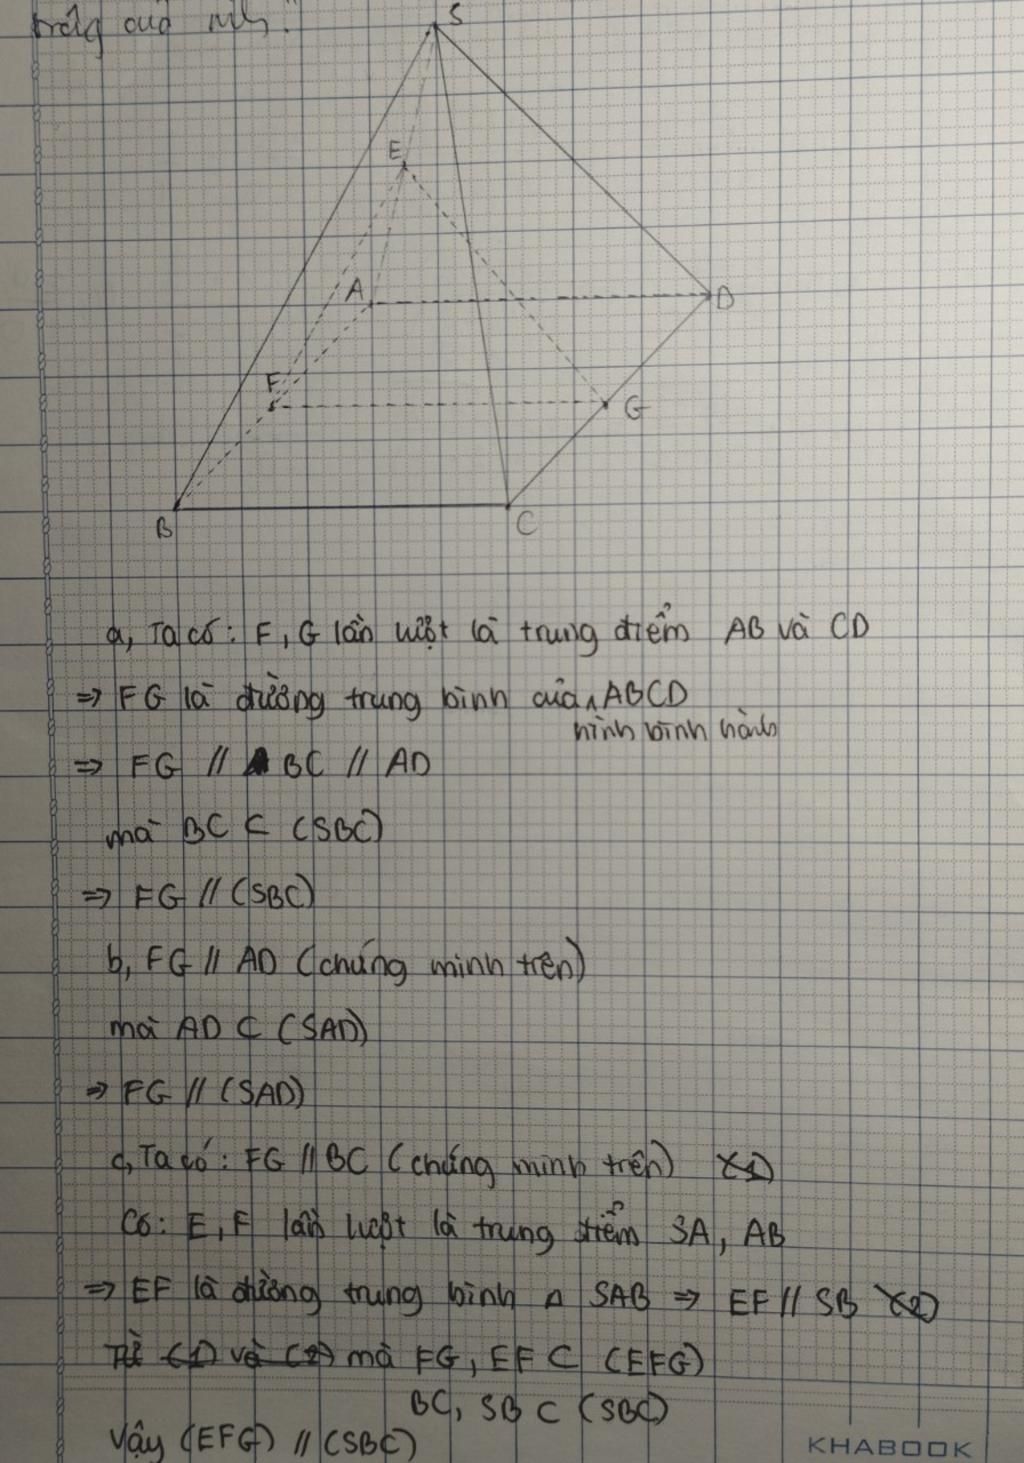 S
E
A
D
F
G
B
C
a, Ta có: F, G lần lượt là trung điểm AB và CD
=> FG là đường trung bình của ABCD
hình bình hành
=> FG // BC // AD
mà BC ⊂ (SBC)
=> FG // (SBC)
b, FG // AD (chứng minh trên)
mà AD ⊂ (SAD)
=> FG // (SAD)
c, Ta có: FG // BC (chứng minh trên) (1)
Có: E, F lần lượt là trung điểm SA, AB
=> EF là đường trung bình △ SAB => EF // SB (2)
Từ (1) và (2) mà FG, EF ⊂ (EFG)
BC, SB ⊂ (SBC)
Vậy (EFG) // (SBC)
KHABOOK